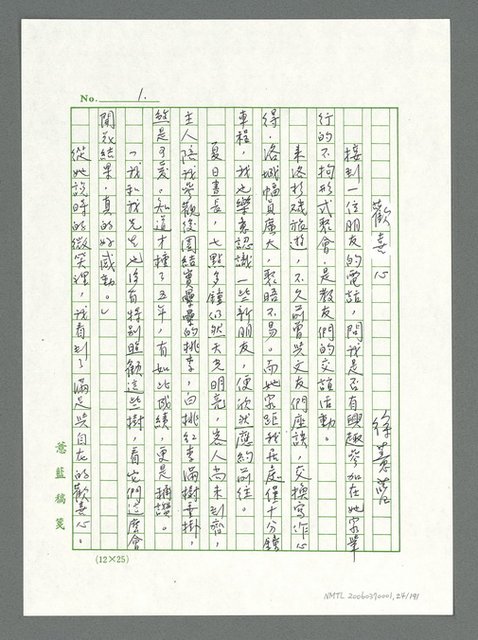 No. 1.
歡喜心
徐薏藍
接到一位朋友的電話，問我是否有興趣參加在她家舉
行的不拘形式聚會，是教友們的交誼活動。
來洛杉磯旅遊，不久前曾與文友們座談，交換寫作心
得。洛城幅員廣大，聚晤不易。而她家距我居處僅十分鐘
車程，我也樂意認識一些新朋友，便欣然應約前往。
夏日晝長，七點多鐘仍然天光明亮，客人尚未到齊，
主人陪我參觀後園結實纍纍的桃李，白桃紅李滿樹垂掛，
煞是可愛。知道才種了五年，有如此成績，更是讚。
「我和我先生也沒有特別照顧這些樹，看它們這麼會
開花結果，真的好感動。」
從她說時的微笑裡，我看到了滿足與自在的歡喜心。
薏藍稿箋
(12×25)
NMTL 20060370001, 24/191